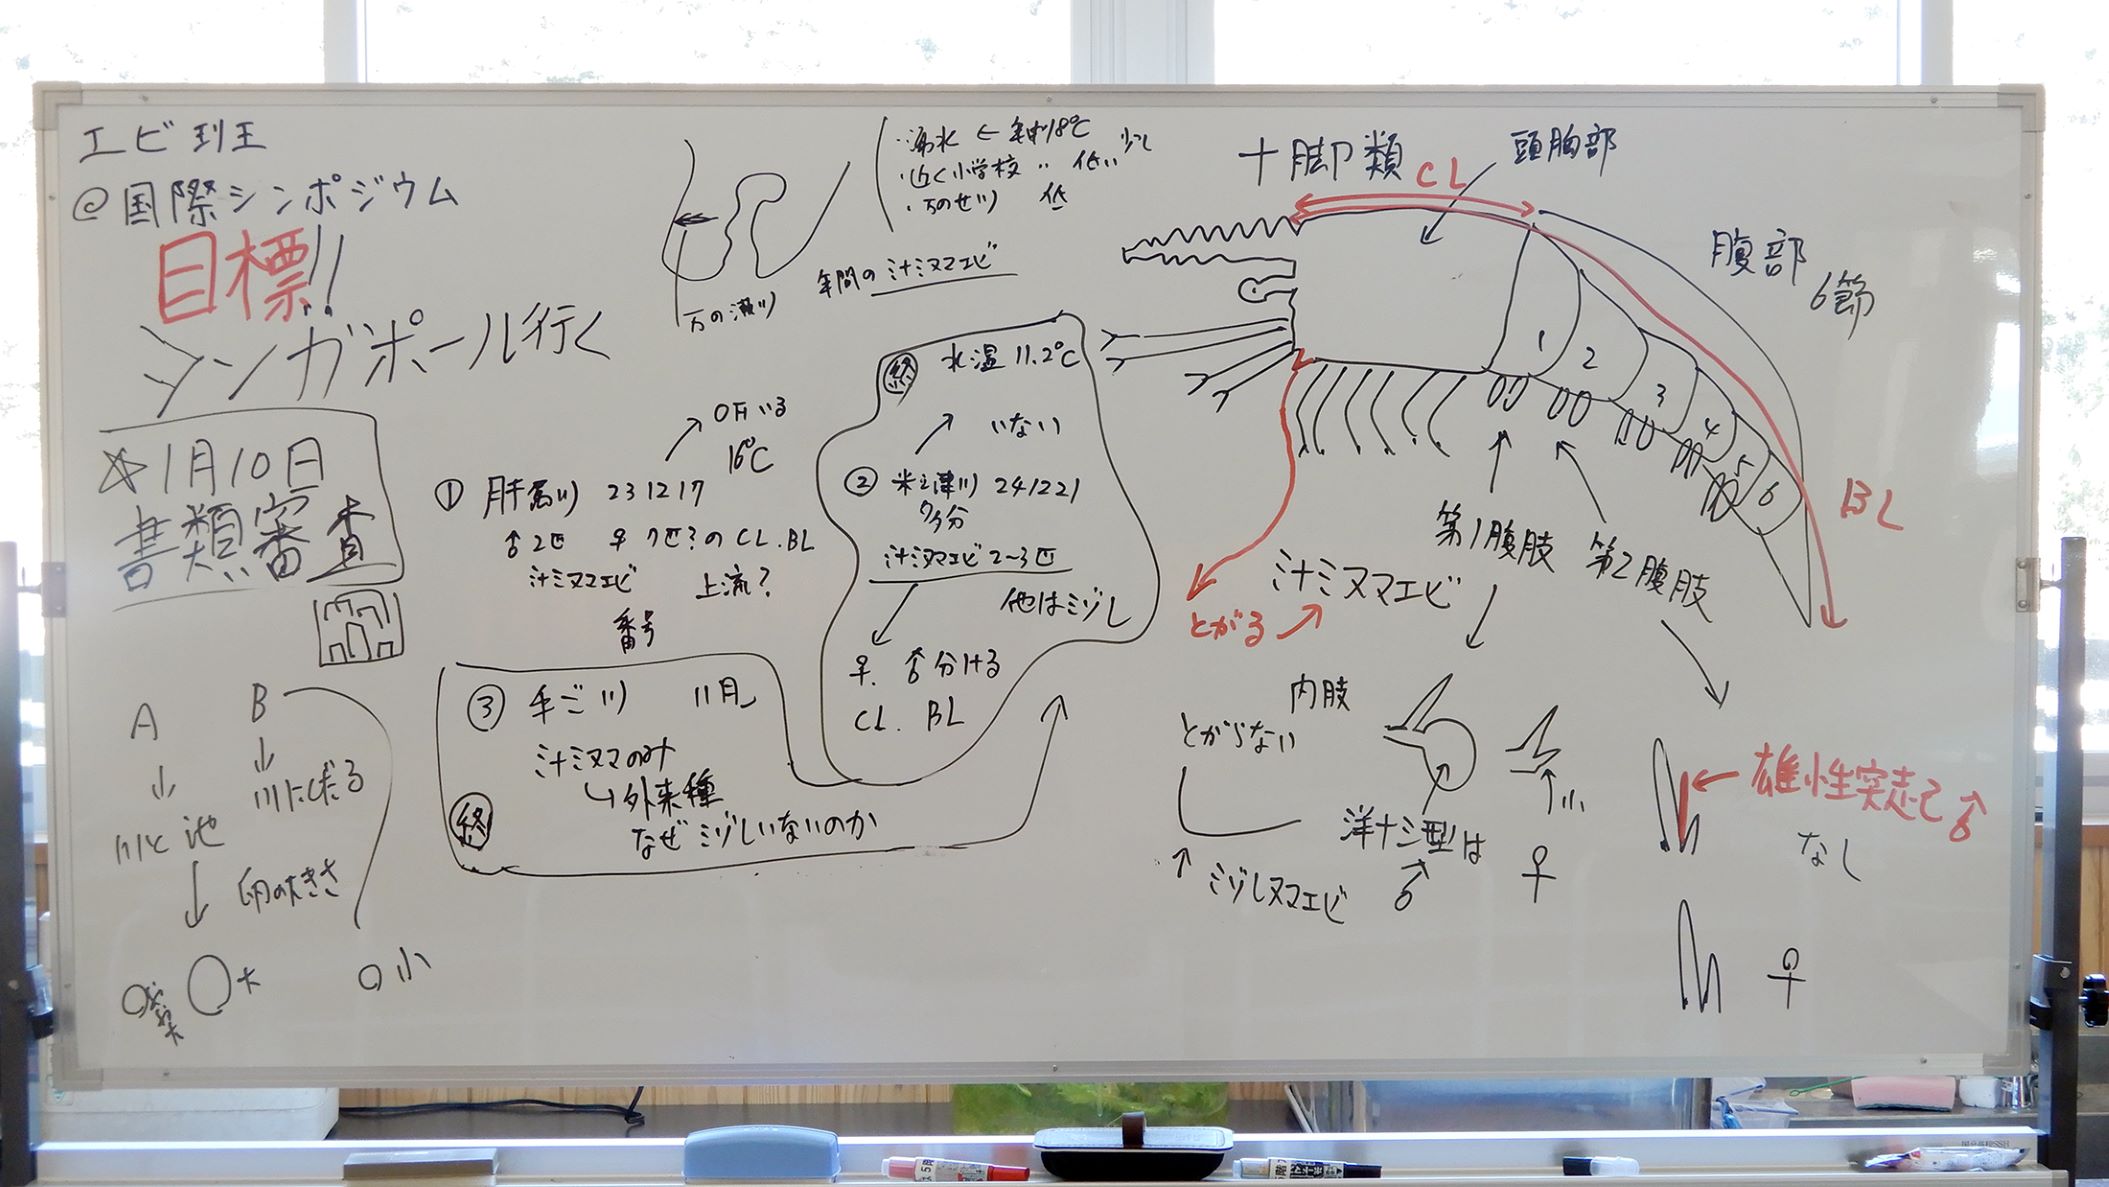 エビ班
@国際シンポジウム
目標!!
シンガポール行く
☆1月10日
書類審査
A
↓
川と池
↓
卵の大きさ
大
B
↓
川にくだる
小
湧水 ← 年中18℃
近く小学校 〃 低い 少し
万のせ川 低
年間の汁ミヌマエビ
万の瀬川
① 肝属川 231217
↗ 0月いる
16℃
♂2匹 ♀7匹?のCL.BL
汁ミヌマエビ 上流?
番号
終 水温 11.2℃
↗ いない
② 米之津川 241221
多分
汁ミヌマエビ 2~3匹
他はミゾレ
♀. ♂分ける
CL. BL
③ 手ご川 11月
汁ミヌマのみ
↳外来種
終 なぜミゾレいないのか
十脚類
CL
頭胸部
腹部
6節
1
2
3
4
5
6
BL
第1腹肢
第2腹肢
とがる ↗
汁ミヌマエビ
内肢
とがらない
↑ ミゾレヌマエビ
洋ナシ型は
♂
小
♀
← 雄性突起 ♂
なし
♀